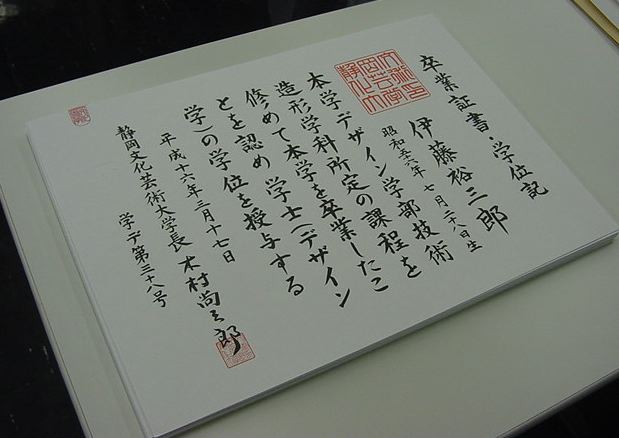 卒業証書・学位記
伊藤裕三郎
昭和五六年七月二八日生
本学デザイン学部技術
造形学科所定の課程を
修めて本学を卒業したこ
とを認め学士(デザイン
学)の学位を授与する
平成十六年三月十七日
静岡文化芸術大学長 木村尚三郎
学デ第三十八号